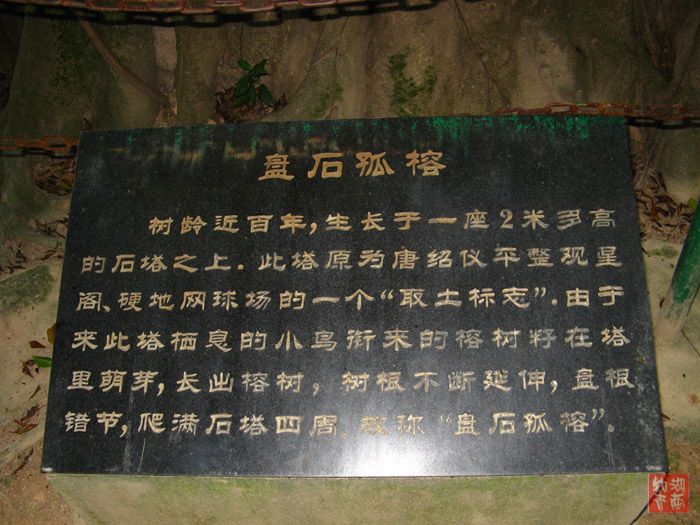 盘石孤榕
树龄近百年，生长于一座2米多高
的石塔之上．此塔原为唐绍仪平整观星
阁、硬地网球场的一个“取土标志”．由于
来此塔栖息的小鸟衔来的榕树籽在塔
里萌芽，长出榕树，树根不断延伸，盘根
错节，爬满石塔四周 故称“盘石孤榕”．